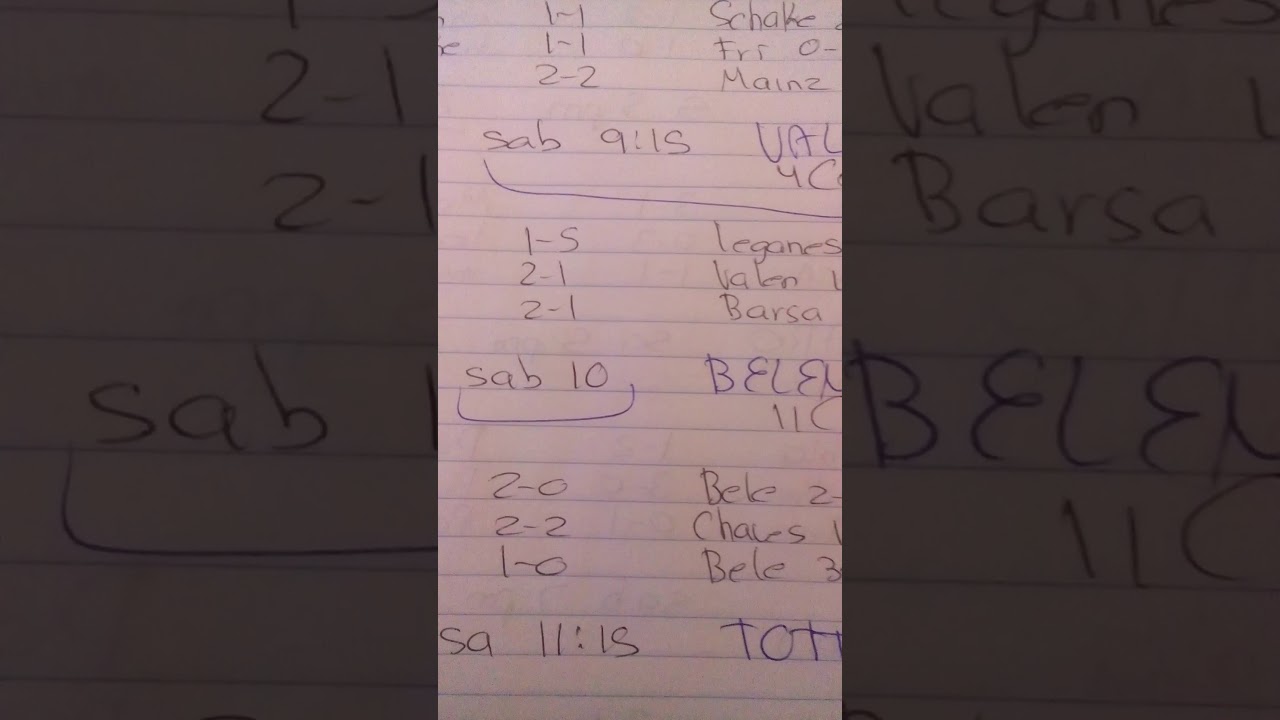 1-1 Schake
1-1 Fri 0-
2-2 Mainz
sab 9:15 VAL
4C
1-5 leganes
2-1 Valen 1
2-1 Barsa
sab 10 BELEN
11C
2-0 Bele 2-
2-2 Chaves 1
1-0 Bele 3
sa 11:15 TOTT